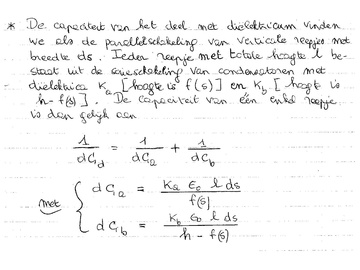 * De capaciteit van het deel met diëlektricum vinden
we als de parallelschakeling van verticale reepjes met
breedte ds. Ieder reepje met totale hoogte l be-
staat uit de serieschakeling van condensatoren met
dielektrica Ka [hoogte is f(s)] en Kb [hoogte is
h - f(s)]. De capaciteit van één enkel reepje
is dan gelijk aan
1/dCd = 1/dCa + 1/dCb
met { dCa = Ka ε0 l ds / f(s)
dCb = Kb ε0 l ds / h - f(s)